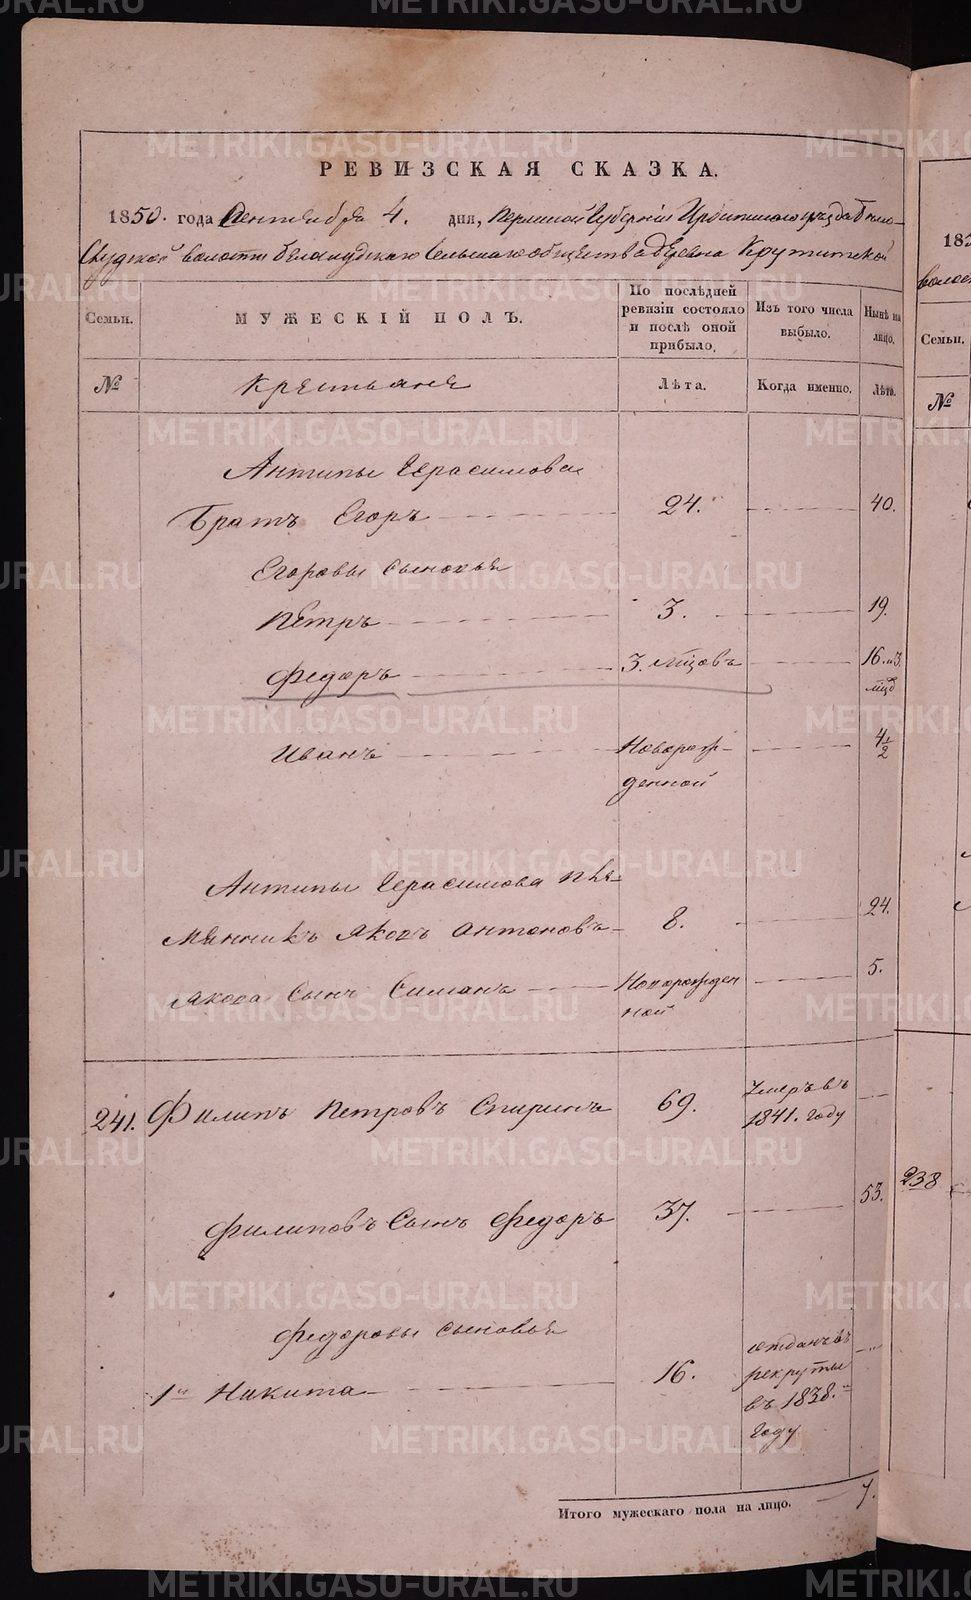 РЕВИЗСКАЯ СКАЗКА.
1850. года Сентября 4. дня, Пермской Губерніи Ирбитскаго уѣзда Бѣло-
Слудской волости Белослудскаго Сельскаго общества деревни Крутитской
Семьи.
МУЖЕСКІЙ ПОЛЪ.
По послѣдней ревизіи состояло и послѣ оной прибыло.
Изъ того числа выбыло.
Нынѣ на лицо.
№
Крестьяне
Лѣта.
Когда именно.
Лѣта.
Антипы Герасимова
Братъ Егоръ 24. 40.
Егоровы сыновья
Петръ 3. 19.
Федоръ 3. мѣсцовъ 16. и 3. мѣсц
Иванъ Новорож- 4 1/2
денной
Антипы Герасимова пле-
мянникъ Яковъ Антоновъ 8. 24.
Якова сынъ Симанъ Новорожден 5.
ной
241. Филипъ Петровъ Спиринъ 69. Умеръ въ
1841. году
Филиповъ Сынъ Федоръ 37. 53.
Федоровы сыновья
1й Никита 16. отданъ въ
рекруты
въ 1838.
году
Итого мужескаго пола на лицо. 7.
185
волос
Семьи.
№
238
METRIKI.GASO-URAL.RU